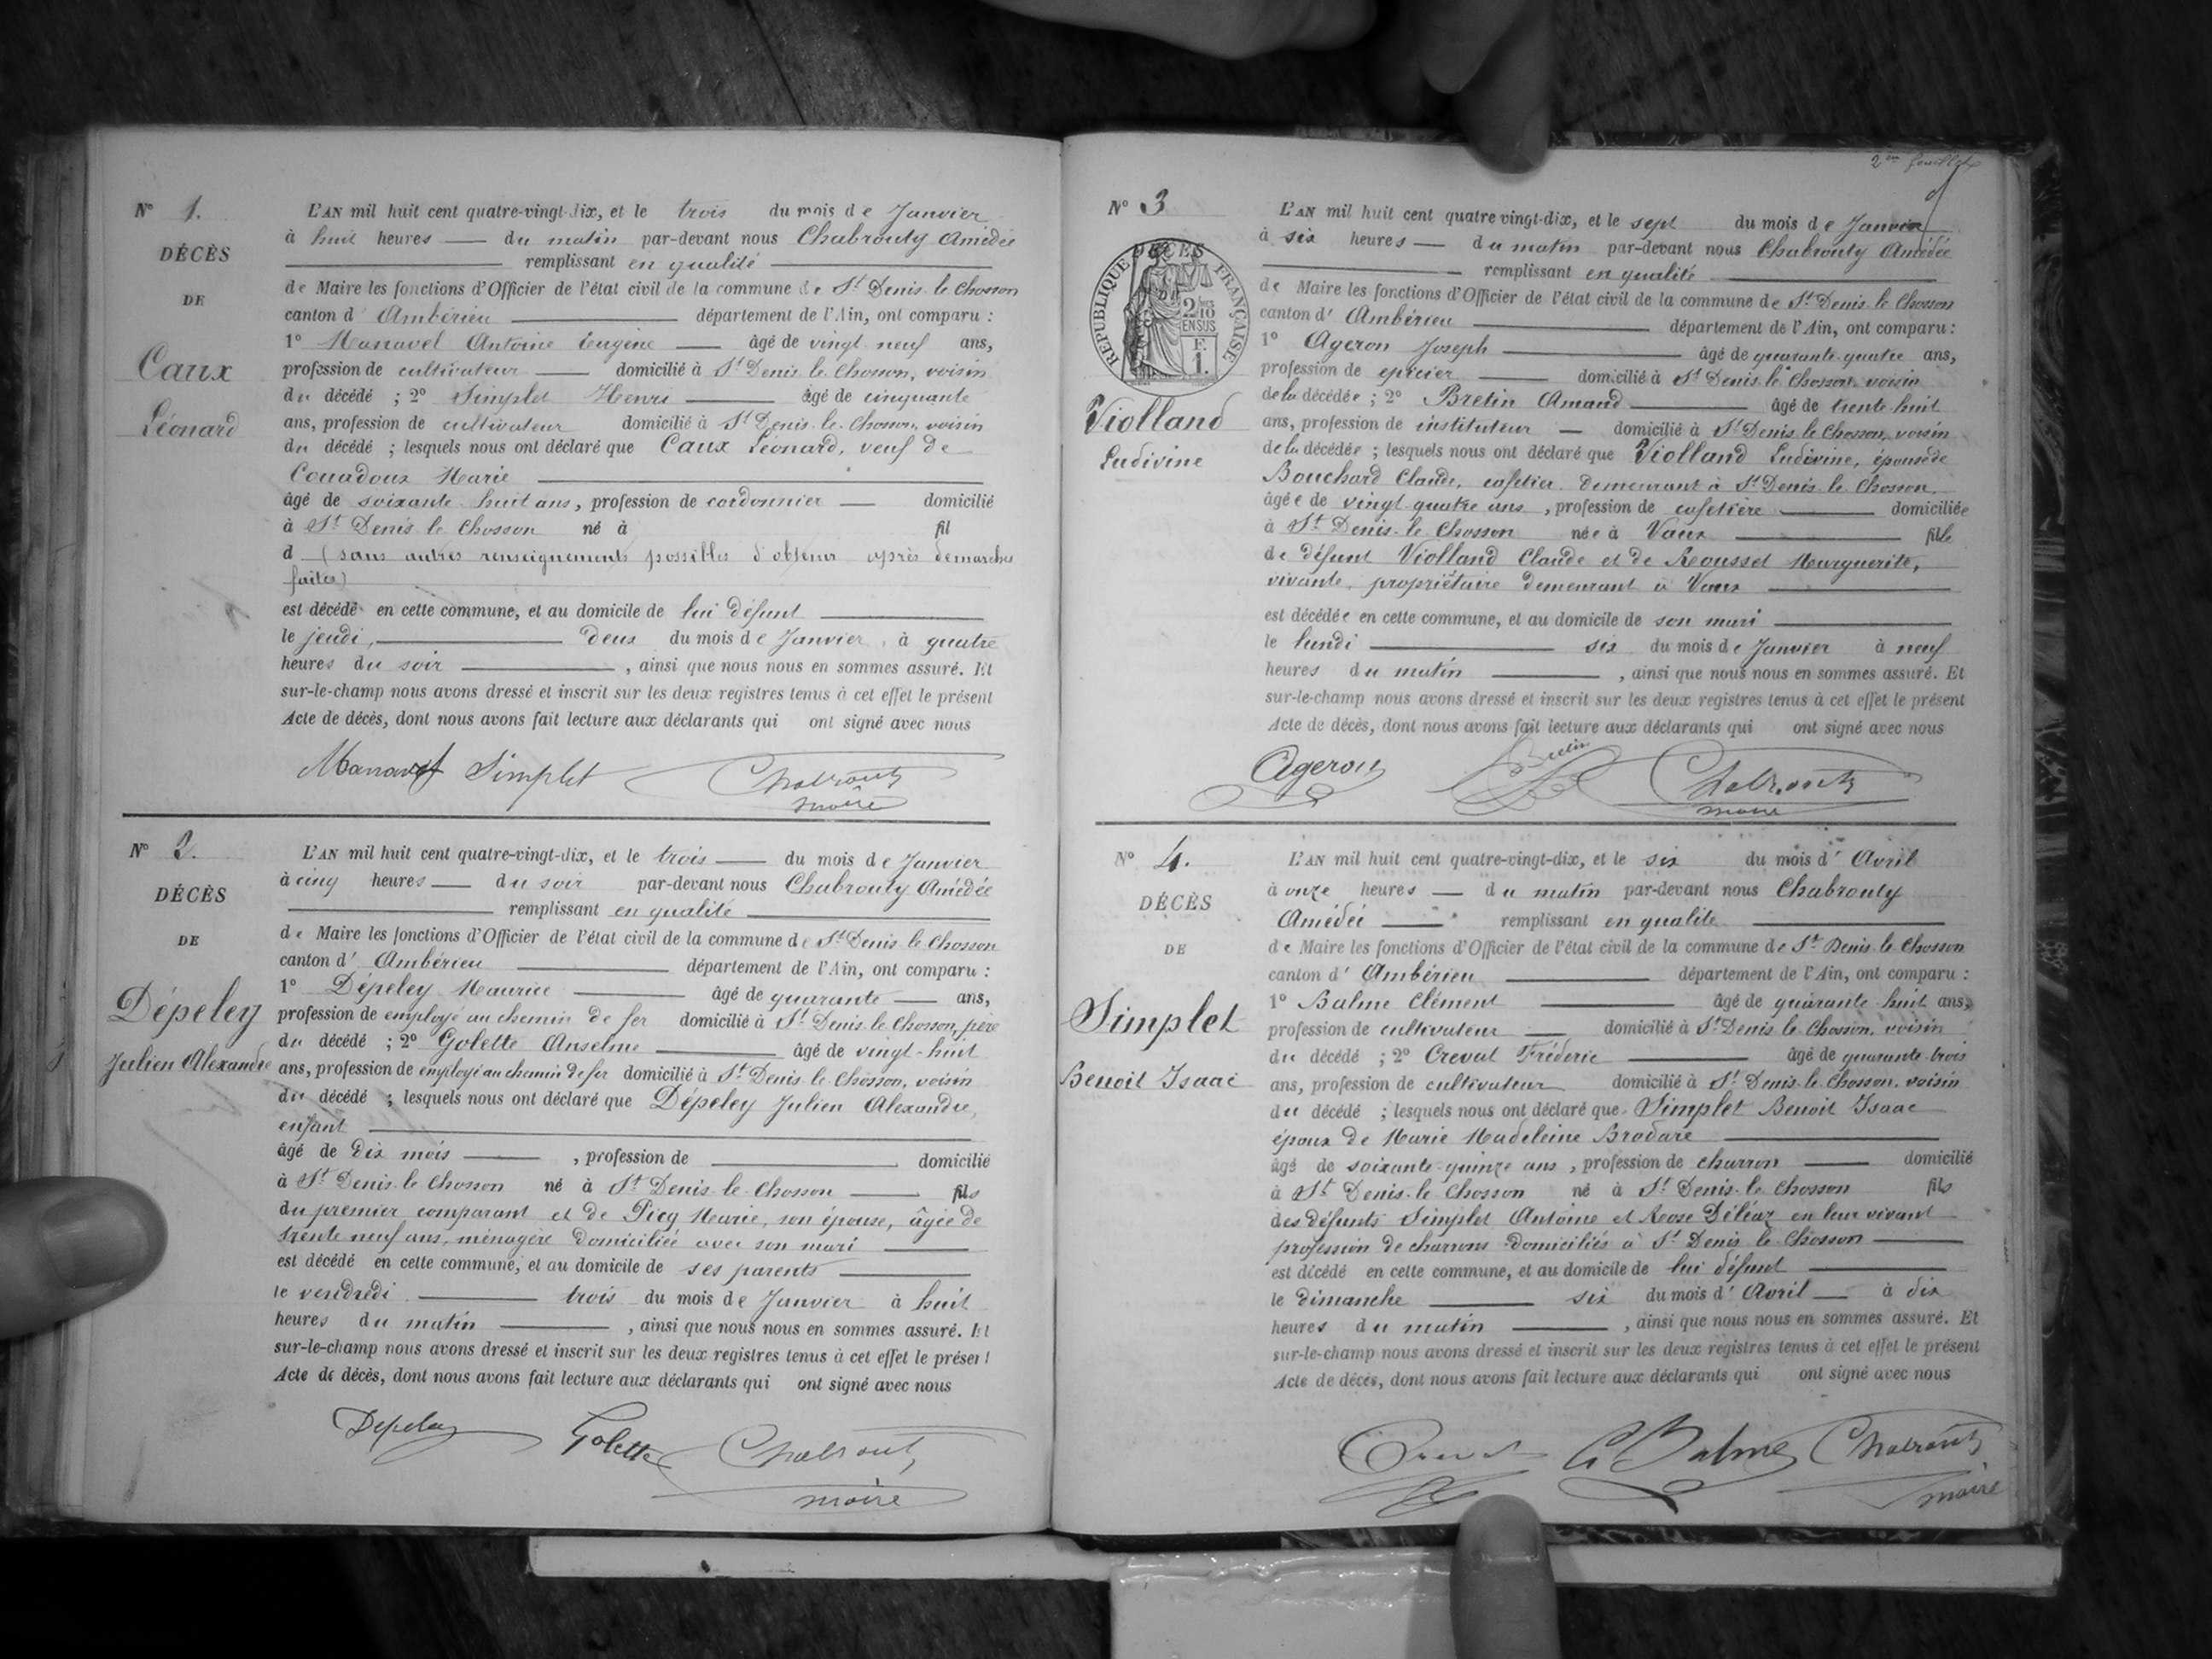 N° 1.
DÉCÈS
DE
Caux
Léonard
L'AN mil huit cent quatre-vingt-dix, et le trois du mois de Janvier
à huit heures du matin par-devant nous Chabrouty Amédée
remplissant en qualité
de Maire les fonctions d'Officier de l'état civil de la commune de St Denis le Chosson
canton d' Ambérieu département de l'Ain, ont comparu :
1° Manavel Antoine Eugène âgé de vingt neuf ans,
profession de cultivateur domicilié à St Denis le Chosson, voisin
du décédé ; 2° Simplet Henri âgé de cinquante
ans, profession de cultivateur domicilié à St Denis le Chosson, voisin
du décédé ; lesquels nous ont déclaré que Caux Léonard, veuf de
Couadoux Marie
âgé de soixante-huit ans, profession de cordonnier domicilié
à St Denis le Chosson né à fil
d (sans autres renseignements possibles d'obtenir après démarches
faites)
est décédé en cette commune, et au domicile de lui défunt
le jeudi, deux du mois de Janvier, à quatre
heures du soir , ainsi que nous nous en sommes assuré. Et
sur-le-champ nous avons dressé et inscrit sur les deux registres tenus à cet effet le présent
Acte de décès, dont nous avons fait lecture aux déclarants qui ont signé avec nous
Manavel Simplet Chabrouty
maire
N° 2.
DÉCÈS
DE
Dépeley
Julien Alexandre
L'AN mil huit cent quatre-vingt-dix, et le trois du mois de Janvier
à cinq heures du soir par-devant nous Chabrouty Amédée
remplissant en qualité
de Maire les fonctions d'Officier de l'état civil de la commune de St Denis le Chosson
canton d' Ambérieu département de l'Ain, ont comparu :
1° Dépeley Maurice âgé de quarante ans,
profession de employé au chemin de fer domicilié à St Denis le Chosson, père
du décédé ; 2° Golette Anselme âgé de vingt-huit
ans, profession de employé au chemin de fer domicilié à St Denis le Chosson, voisin
du décédé ; lesquels nous ont déclaré que Dépeley Julien Alexandre,
enfant
âgé de dix mois , profession de domicilié
à St Denis le Chosson né à St Denis le Chosson fils
du premier comparant et de Picq Marie, son épouse, âgée de
trente neuf ans, ménagère domiciliée avec son mari
est décédé en cette commune, et au domicile de ses parents
le vendredi trois du mois de Janvier à huit
heures du matin , ainsi que nous nous en sommes assuré. Et
sur-le-champ nous avons dressé et inscrit sur les deux registres tenus à cet effet le présent
Acte de décès, dont nous avons fait lecture aux déclarants qui ont signé avec nous
Depeley Golette Chabrouty
maire
2me feuillet
N° 3
DÉCÈS
RÉPUBLIQUE FRANÇAISE
2/10 EN SUS
F. 1.
Violland
Ludivine
L'AN mil huit cent quatre vingt-dix, et le sept du mois de Janvier
à six heures du matin par-devant nous Chabrouty Amédée
remplissant en qualité
de Maire les fonctions d'Officier de l'état civil de la commune de St Denis le Chosson
canton d' Ambérieu département de l'Ain, ont comparu :
1° Ageron Joseph âgé de quarante-quatre ans,
profession de épicier domicilié à St Denis le Chosson, voisin
de la décédée ; 2° Bretin Amand âgé de trente huit
ans, profession de instituteur domicilié à St Denis le Chosson, voisin
de la décédée ; lesquels nous ont déclaré que Violland Ludivine, épouse de
Bouchard Claude, cafetier demeurant à St Denis le Chosson
âgée de vingt-quatre ans, profession de cafetière domiciliée
à St Denis le Chosson née à Vaux fille
de défunt Violland Claude et de Rousset Marguerite,
vivante, propriétaire demeurant à Vaux
est décédée en cette commune, et au domicile de son mari
le lundi six du mois de Janvier à neuf
heures du matin , ainsi que nous nous en sommes assuré. Et
sur-le-champ nous avons dressé et inscrit sur les deux registres tenus à cet effet le présent
Acte de décès, dont nous avons fait lecture aux déclarants qui ont signé avec nous
Ageron Bretin Chabrouty
maire
N° 4.
DÉCÈS
DE
Simplet
Benoit Isaac
L'AN mil huit cent quatre-vingt-dix, et le six du mois d' Avril
à onze heures du matin par-devant nous Chabrouty
Amédée remplissant en qualité
de Maire les fonctions d'Officier de l'état civil de la commune de St Denis le Chosson
canton d' Ambérieu département de l'Ain, ont comparu :
1° Balme Clément âgé de quarante-huit ans,
profession de cultivateur domicilié à St Denis le Chosson, voisin
du décédé ; 2° Creval Fréderic âgé de quarante-trois
ans, profession de cultivateur domicilié à St Denis le Chosson, voisin
du décédé ; lesquels nous ont déclaré que Simplet Benoit Isaac
époux de Marie Madeleine Brodare
âgé de soixante-quinze ans, profession de charron domicilié
à St Denis le Chosson né à St Denis le Chosson fils
des défunts Simplet Antoine et Rose Déléaz en leur vivant
profession de charrons domiciliés à St Denis le Chosson
est décédé en cette commune, et au domicile de lui défunt
le dimanche six du mois d' Avril à dix
heures du matin , ainsi que nous nous en sommes assuré. Et
sur-le-champ nous avons dressé et inscrit sur les deux registres tenus à cet effet le présent
Acte de décès, dont nous avons fait lecture aux déclarants qui ont signé avec nous
Creval C Balme Chabrouty
maire